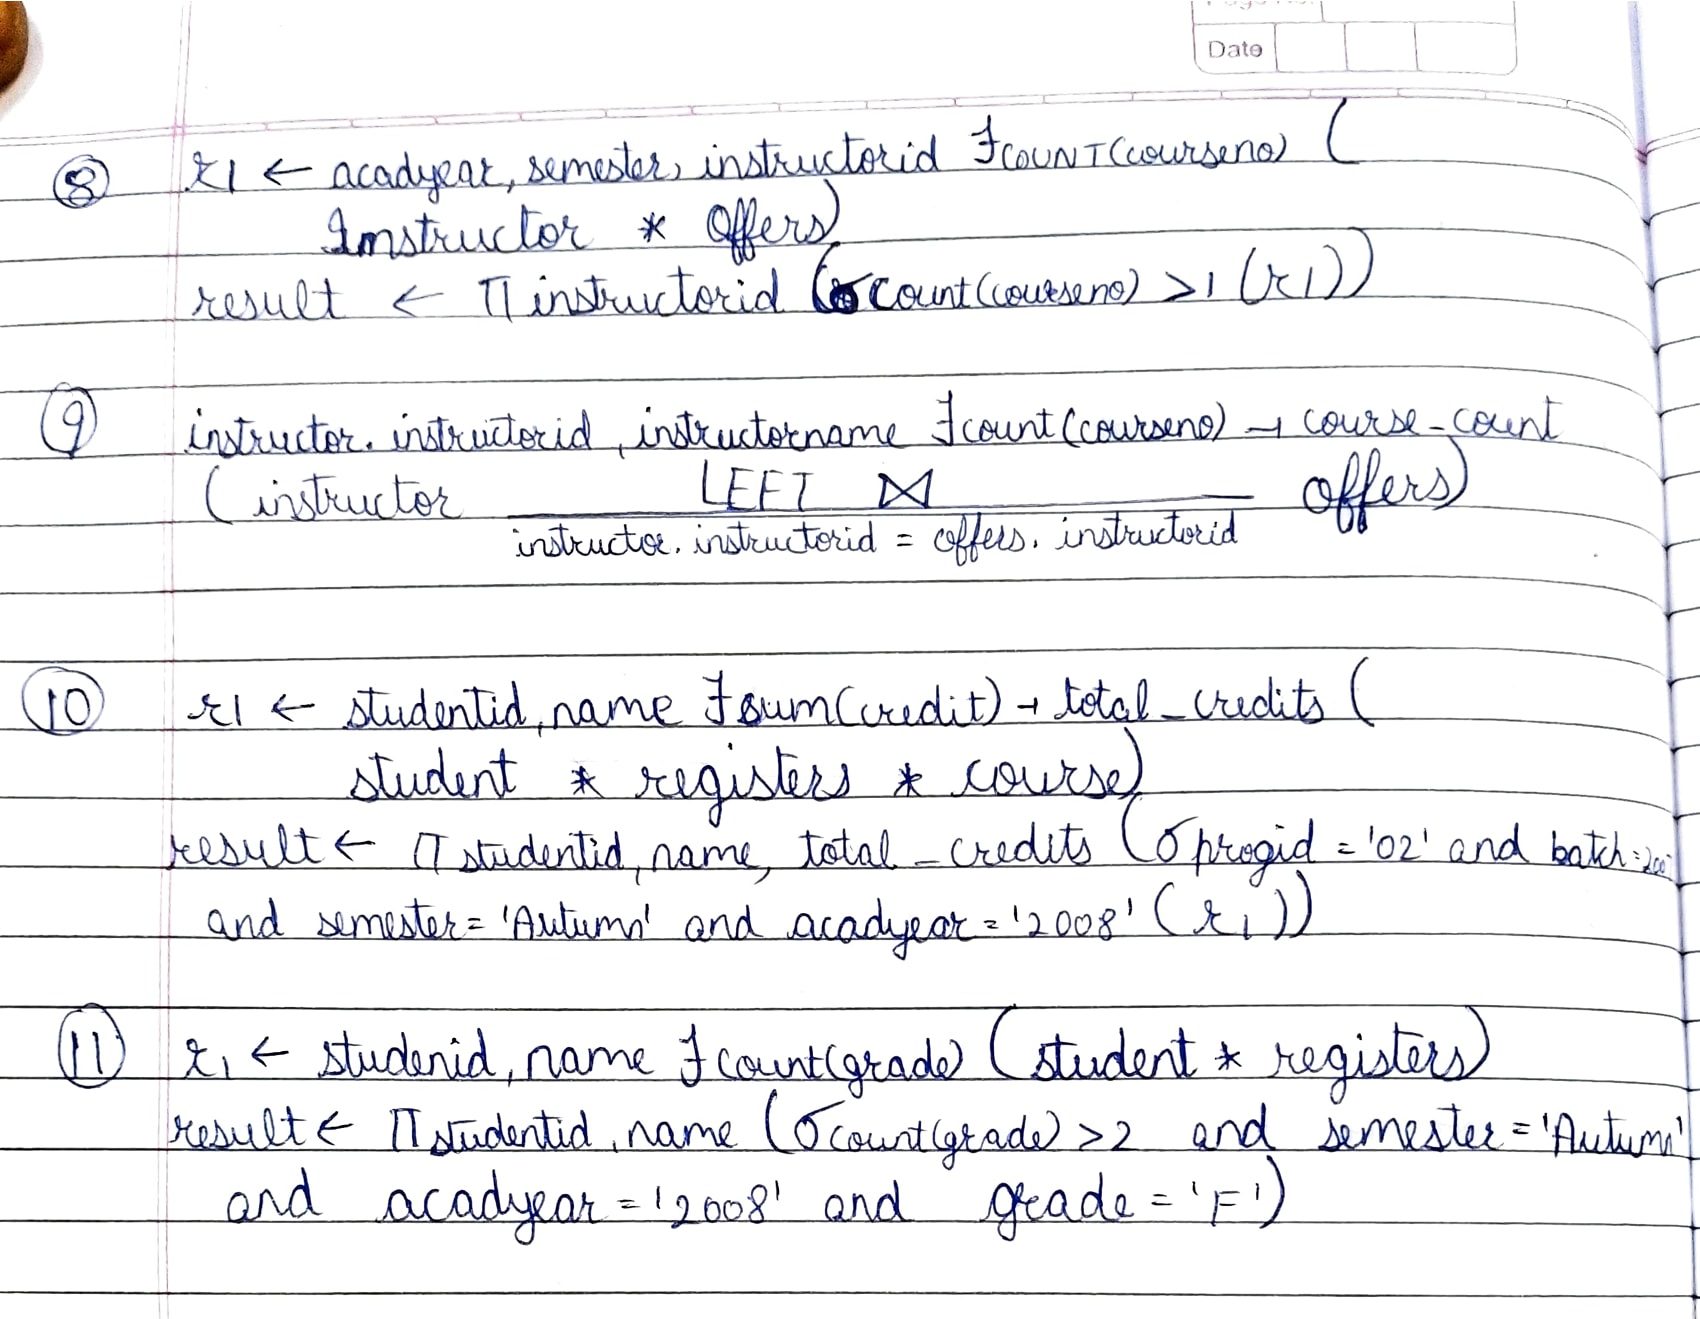 Date
⑧ r1 ← acadyear, semester, instructorid ℱCOUNT(courseno) (
Instructor * Offers)
result ← π instructorid (σcount(courseno) >1 (r1))
⑨ instructor. instructorid, instructorname ℱcount(courseno) → course-count
(instructor LEFT ⋈ offers)
instructor. instructorid = offers. instructorid
⑩ r1 ← studentid, name ℱsum(credit) → total_credits (
student * registers * course)
result ← π studentid, name, total_credits (σ progid = '02' and batch =
and semester = 'Autumn' and acadyear = '2008' (r1))
⑪ r1 ← studenid, name ℱcount(grade) (student * registers)
result ← π studentid, name (σcount(grade) >2 and semester = 'Autumn'
and acadyear = '2008' and grade = 'F')